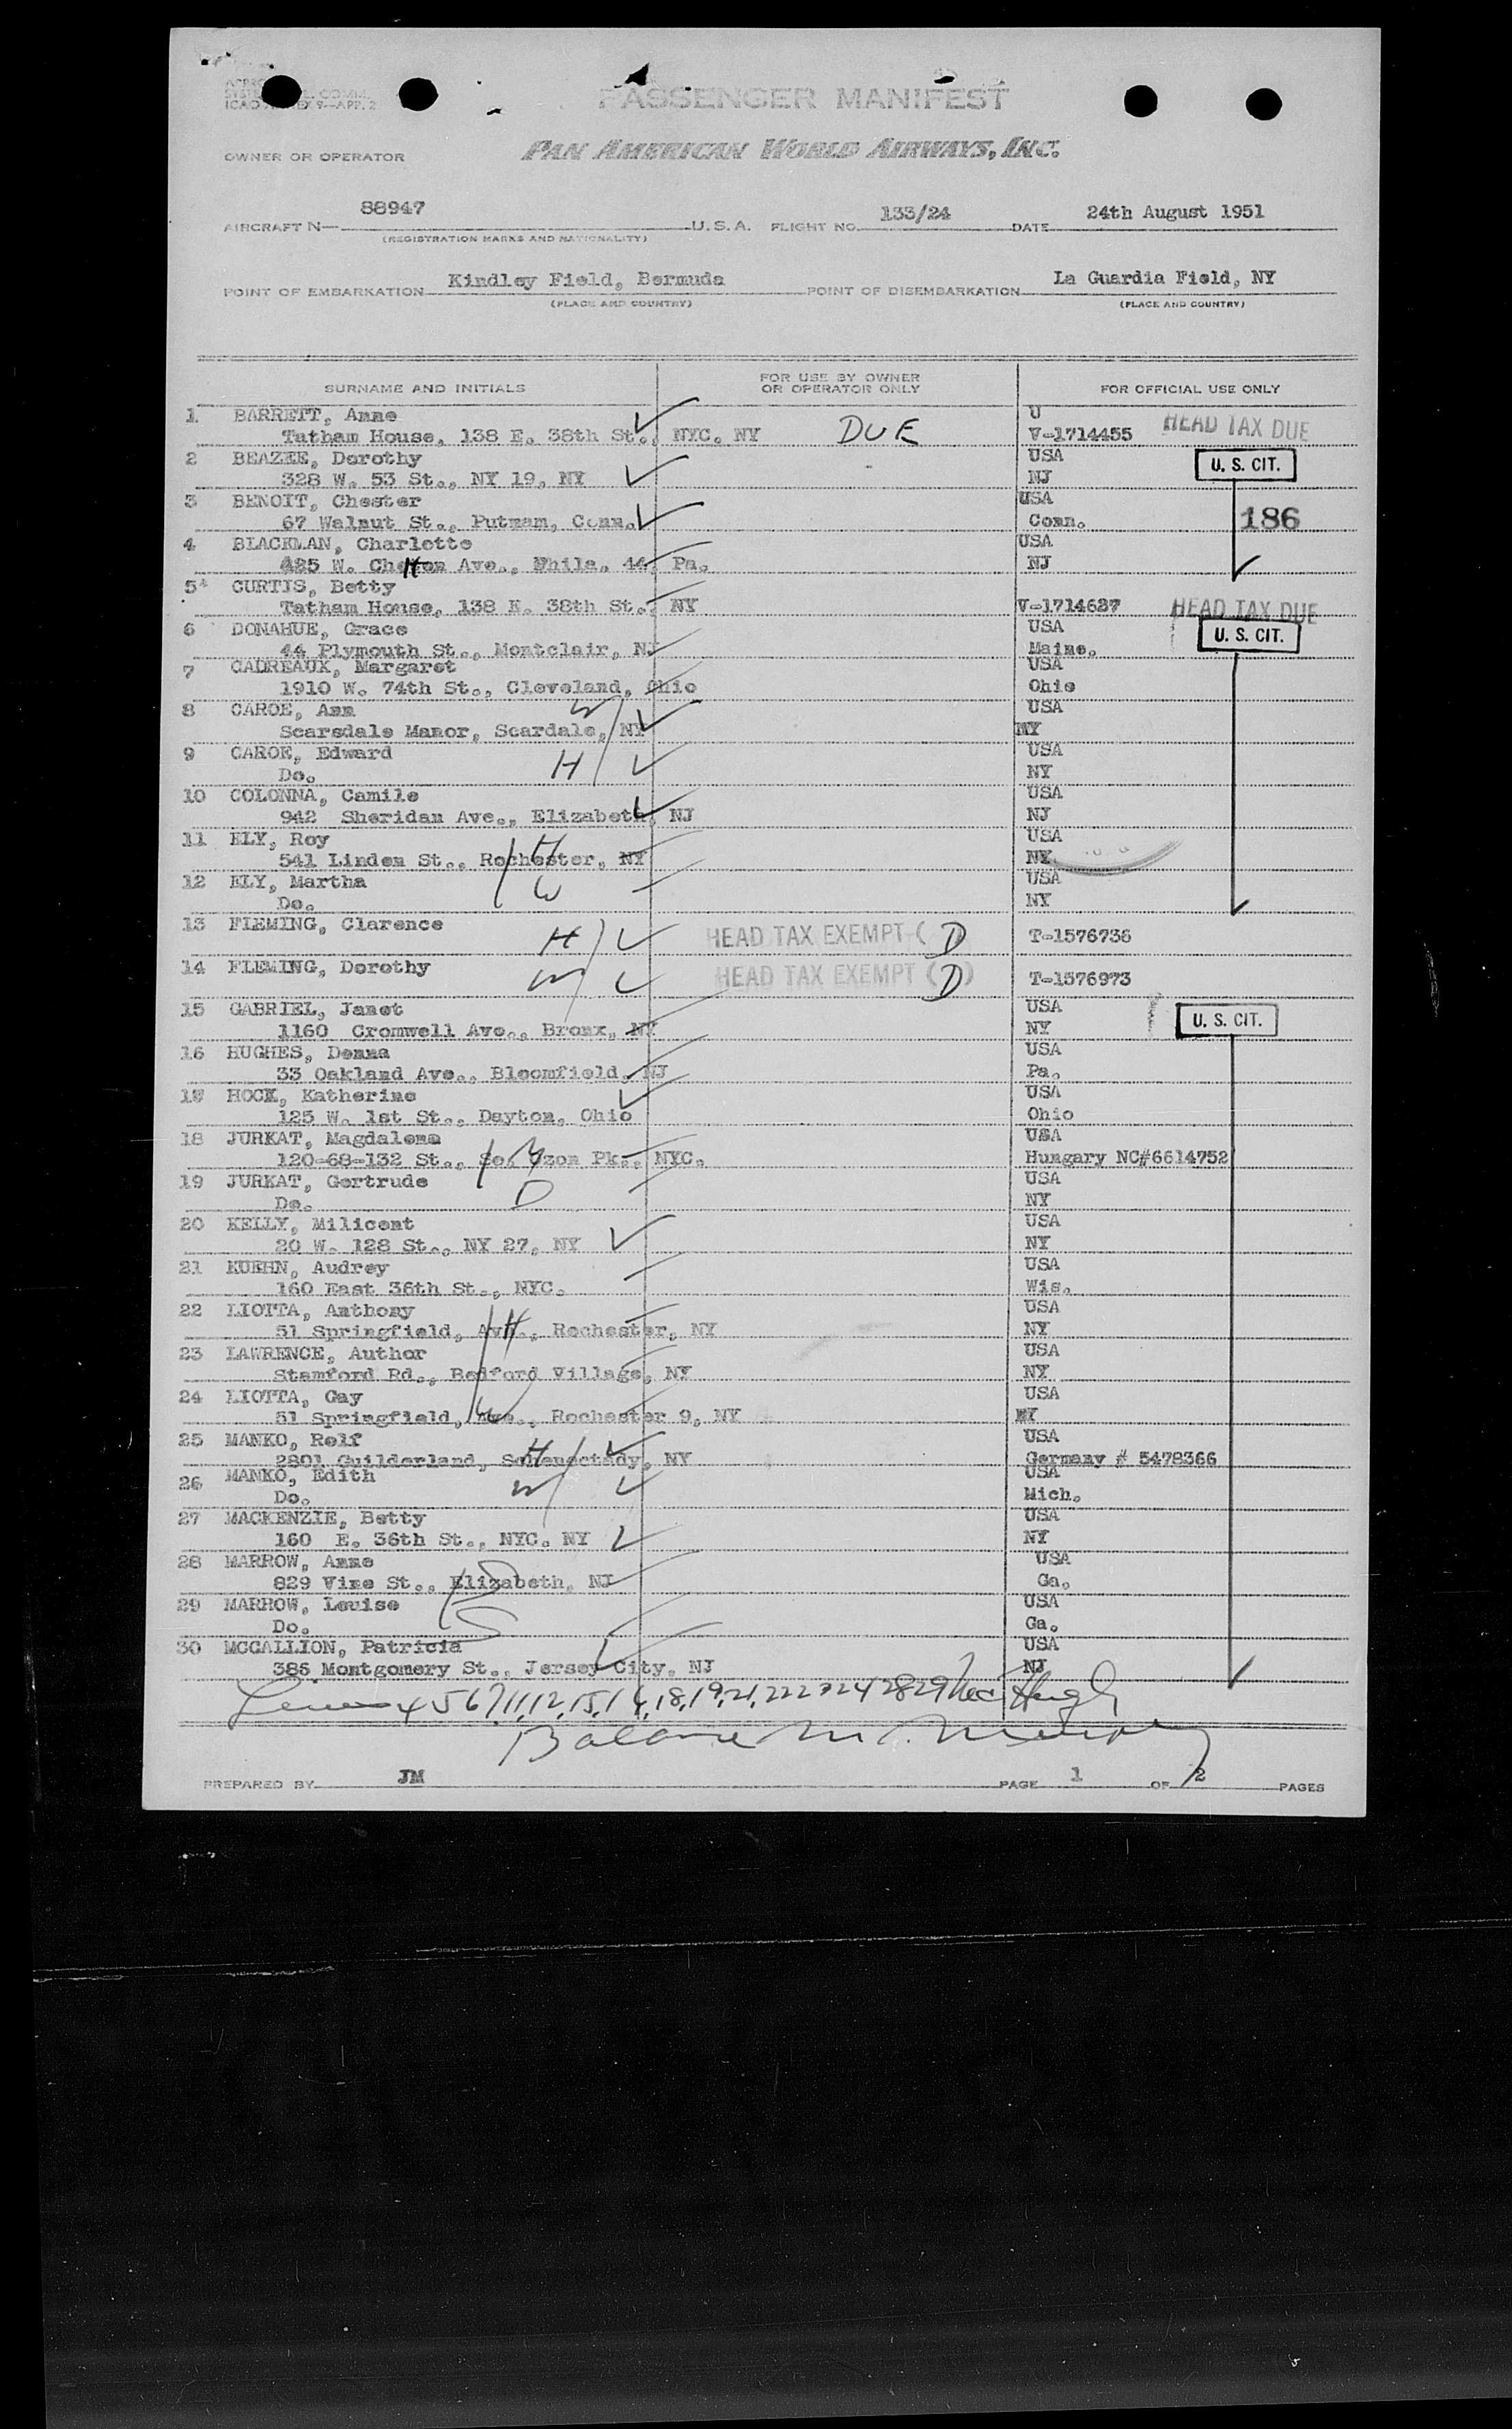 PASSENGER MANIFEST
ICAO ANNEX 9—APP. 2
OWNER OR OPERATOR PAN AMERICAN WORLD AIRWAYS, INC.
AIRCRAFT N— 88947 U.S.A. FLIGHT NO. 133/24 DATE 24th August 1951
(REGISTRATION MARKS AND NATIONALITY)
POINT OF EMBARKATION Kindley Field, Bermuda POINT OF DISEMBARKATION La Guardia Field, NY
(PLACE AND COUNTRY) (PLACE AND COUNTRY)
SURNAME AND INITIALS FOR USE BY OWNER OR OPERATOR ONLY FOR OFFICIAL USE ONLY
1 BARRETT, Anne U
Tatham House, 138 E. 38th St., NYC. NY DUE V-1714455 HEAD TAX DUE
2 BEAZEE, Dorothy USA U. S. CIT.
328 W. 53 St., NY 19, NY NJ
3 BENOIT, Chester USA
67 Walnut St., Putnam, Conn. Conn. 186
4 BLACKLAN, Charlotte USA
425 W. Chelton Ave., Phila. 44, Pa. NJ
5 CURTIS, Betty
Tatham House, 138 E. 38th St., NY V-1714687 HEAD TAX DUE
6 DONAHUE, Grace USA U. S. CIT.
44 Plymouth St., Montclair, NJ Maine.
7 CADREAUX, Margaret USA
1910 W. 74th St., Cleveland, Ohio Ohio
8 CAROE, Ann W USA
Scarsdale Manor, Scardale, NY NY
9 CAROE, Edward USA
Do. H NY
10 COLONNA, Camile USA
942 Sheridan Ave., Elizabeth, NJ NJ
11 ELY, Roy H USA
541 Linden St., Rochester, NY NY
12 ELY, Martha W USA
Do. NY
13 FLEMING, Clarence H HEAD TAX EXEMPT (D T-1576736
14 FLEMING, Dorothy W HEAD TAX EXEMPT (D) T-1576973
15 GABRIEL, Janet USA U. S. CIT.
1160 Cromwell Ave., Bronx, NY NY
16 HUGHES, Donna USA
33 Oakland Ave., Bloomfield, NJ Pa.
17 HOCK, Katherine USA
125 W. 1st St., Dayton, Ohio Ohio
18 JURKAT, Magdalena USA
120-68-132 St., So. Ozon Pk., NYC. M Hungary NC#6614752
19 JURKAT, Gertrude USA
Do. D NY
20 KELLY, Milicent USA
20 W. 128 St., NY 27, NY NY
21 KUEHN, Audrey USA
160 East 36th St., NYC. Wis.
22 LIOTTA, Anthony USA
51 Springfield, Ave., Rochester, NY H NY
23 LAWRENCE, Author USA
Stamford Rd., Bedford Village, NY NY
24 LIOTTA, Gay USA
51 Springfield, Ave., Rochester 9, NY W NY
25 MANKO, Rolf H USA
2801 Guilderland, Schenectady, NY Germany # 5478366
26 MANKO, Edith USA
Do. W Mich.
27 MACKENZIE, Betty USA
160 E. 36th St., NYC. NY NY
28 MARROW, Anne USA
829 Vine St., Elizabeth, NJ S Ga.
29 MARROW, Louise USA
Do. S Ga.
30 MCGALLION, Patricia USA
386 Montgomery St., Jersey City, NJ NJ
4 5 6 7, 11, 12, 15, 16, 18, 19, 21, 22 23 24 28 29
Balance
PREPARED BY JM PAGE 1 OF 2 PAGES